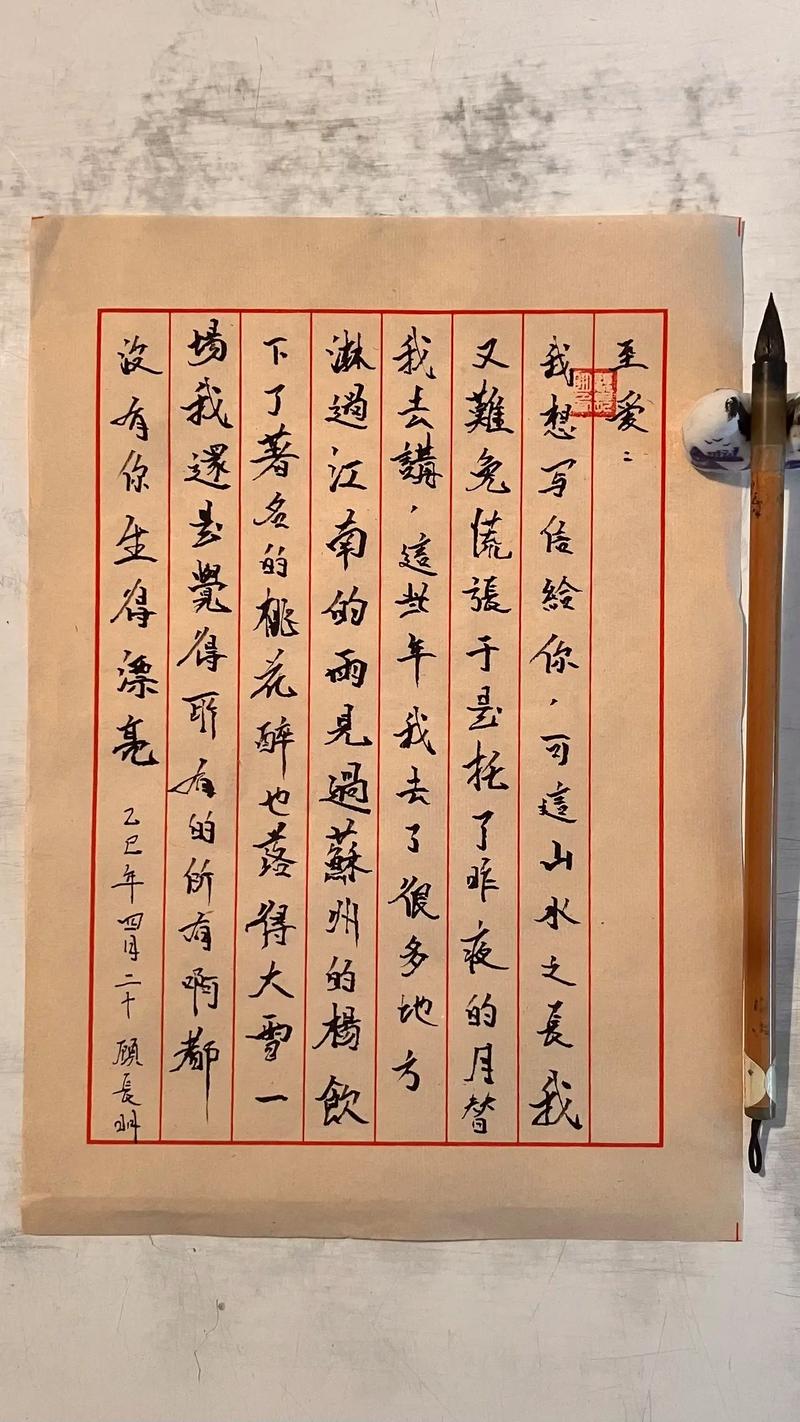 至愛：
我想写信給你，可這山水之長我
又難免慌張于是托了昨夜的月替
我去講，這些年我去了很多地方
淋過江南的雨見過蘇州的楊飲
下了著名的桃花醉也落得大雪一
場我還是覺得所有的所有啊都
没有你生得漂亮
乙巳年四月二十 顧長